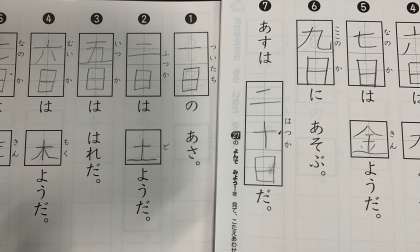 ④
⑤ 七日は 金ようだ。
なのか きん
⑥ 九日に あそぶ。
ここのか
⑦ あすは 二十日だ。
はつか
① 一日の あさ。
ついたち
② 二日は 土ようだ。
ふつか ど
③ 五日は はれだ。
いつか
④ 六日は 木ようだ。
むいか もく
なのか きん